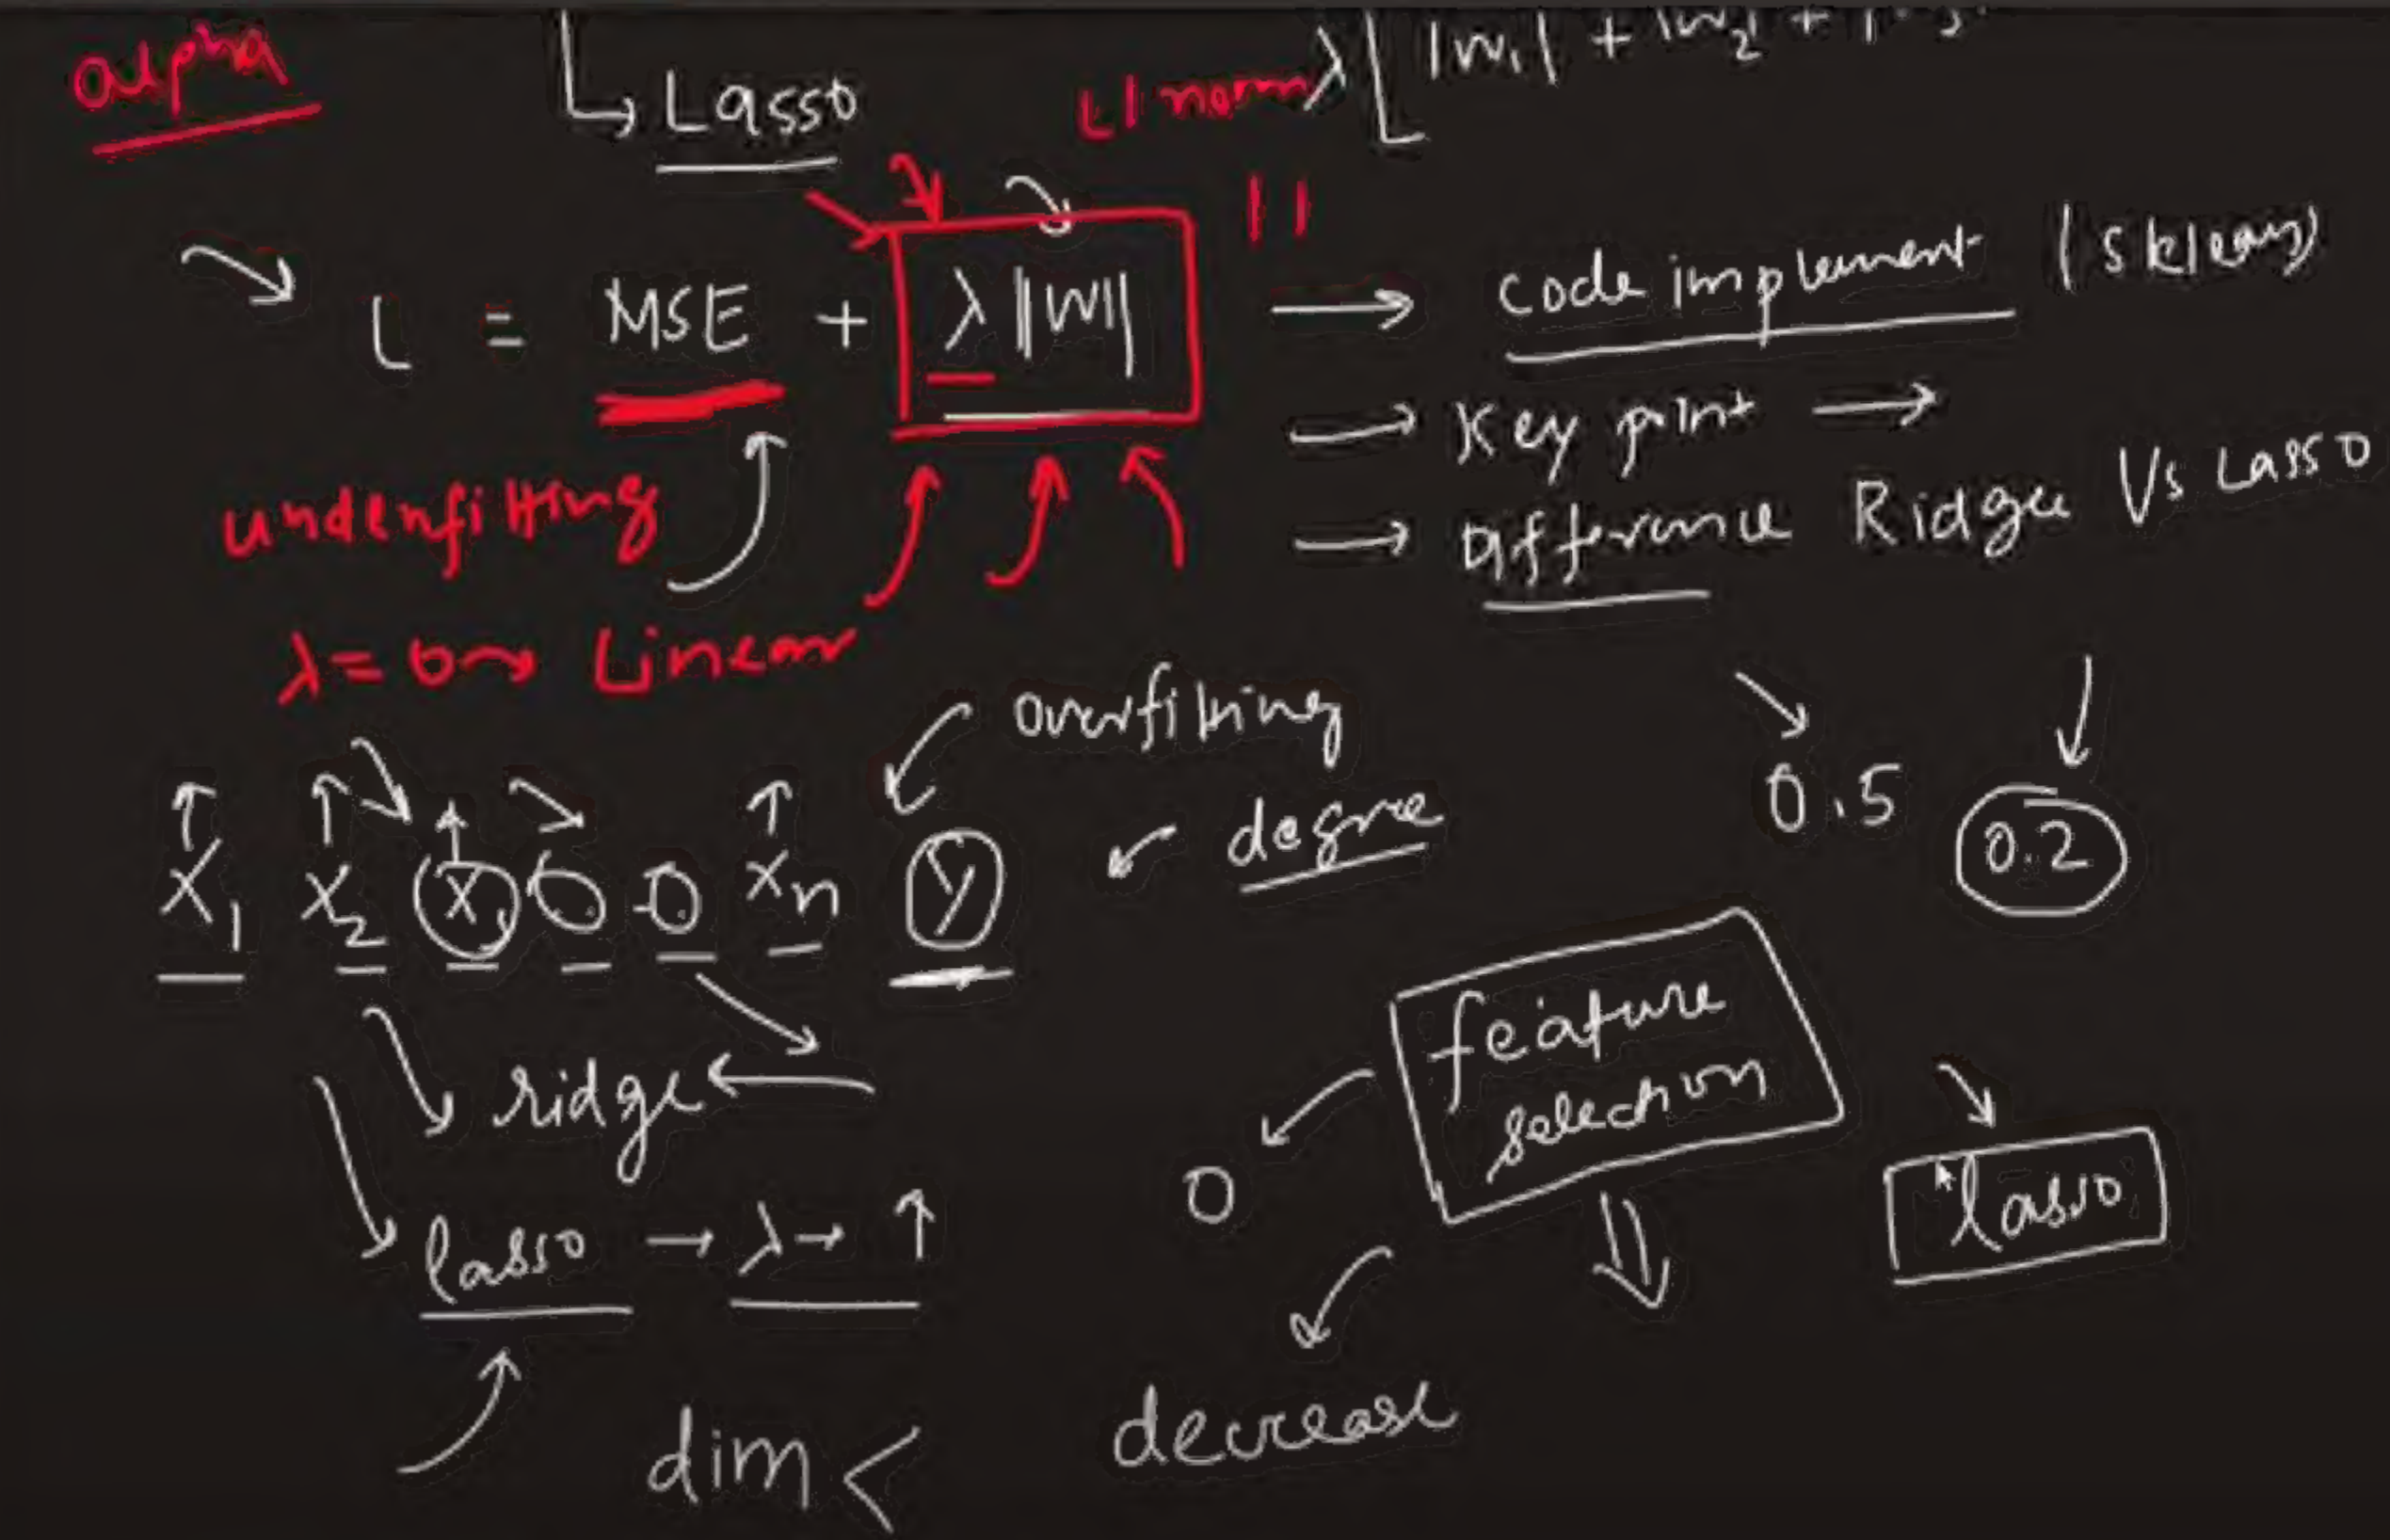 alpha
Lasso
L1 norm λ[ |W₁| + |W₂| +
L = MSE + λ ||W||
→ code implement (sklearn)
→ Key point →
→ Difference Ridge Vs Lasso
underfitting
λ = 0 → Linear
overfitting
degree
0.5 0.2
X₁ X₂ X₃ 0 0 Xn y
feature
selection
ridge ←
0
lasso
lasso → λ → ↑
decrease
dim <